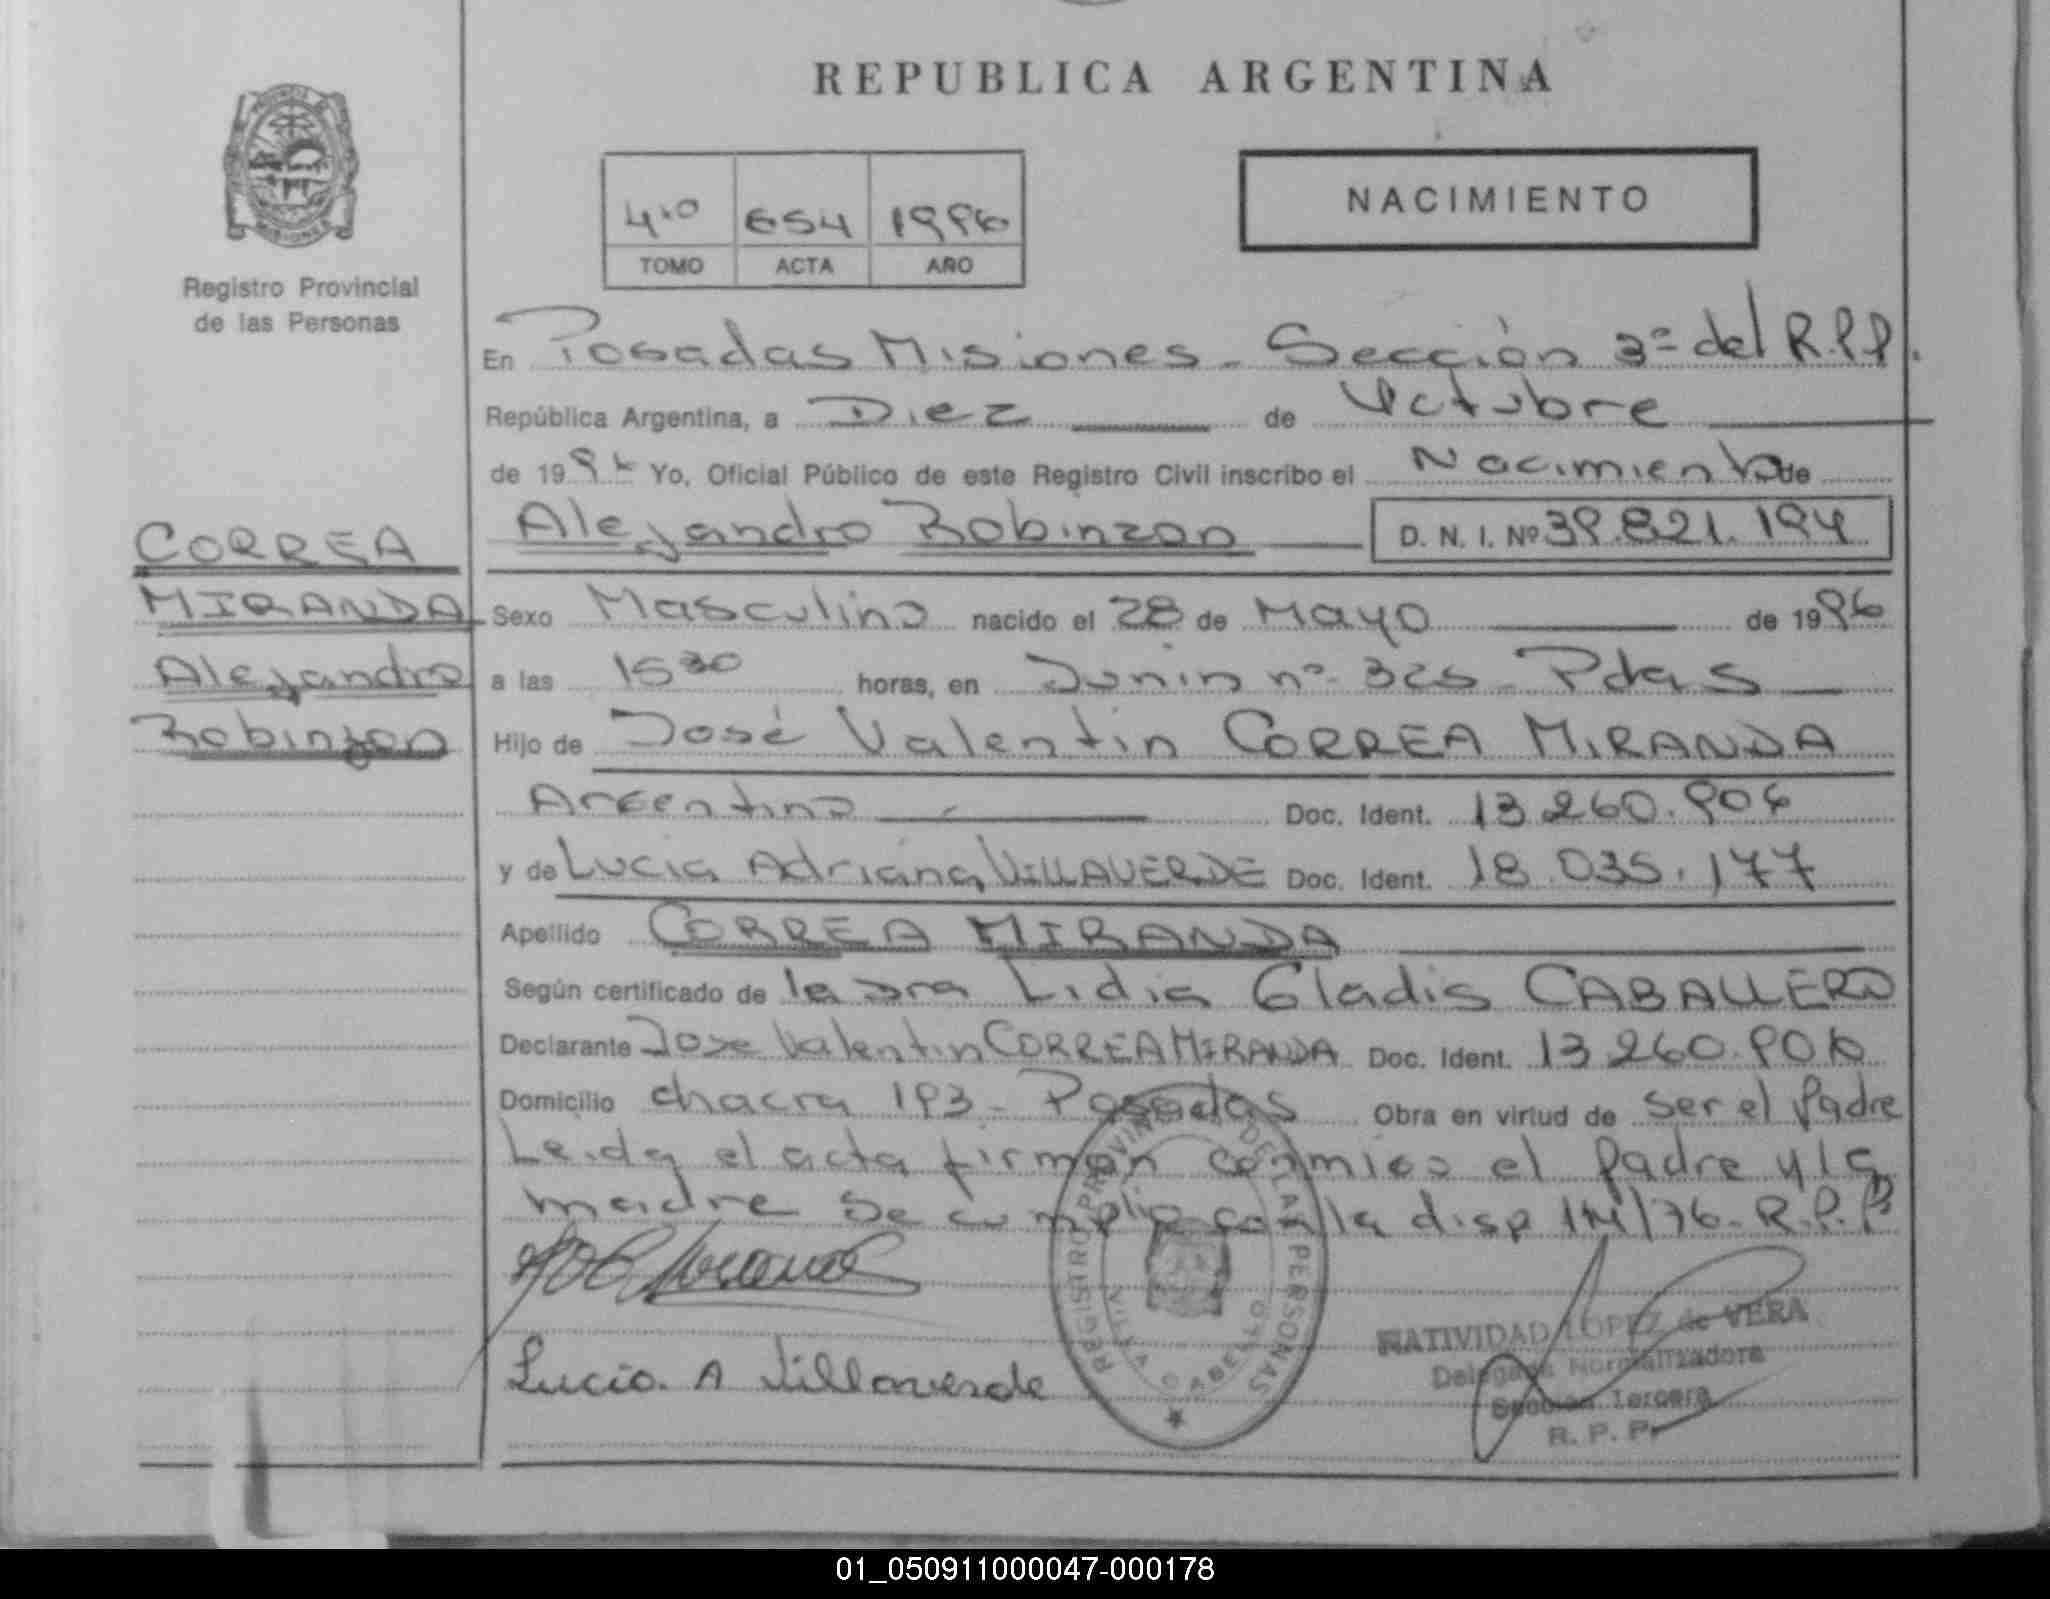 REPUBLICA ARGENTINA
NACIMIENTO
4to 654 1996
TOMO ACTA AÑO
Registro Provincial
de las Personas
En Posadas Misiones - Sección 3ª del R.P.P.
República Argentina, a Diez de Octubre
de 1996 Yo, Oficial Público de este Registro Civil inscribo el Nacimiento de
Alejandro Robinzon D. N. I. Nº 39.821.194
CORREA
MIRANDA
Alejandro
Robinzon
Sexo Masculino nacido el 28 de Mayo de 1996
a las 15 30 horas, en Junin nº 325 - Pdas
Hijo de José Valentin CORREA MIRANDA
Argentino Doc. Ident. 13.260.906
y de Lucia Adriana VILLAVERDE Doc. Ident. 18.035.177
Apellido CORREA MIRANDA
Según certificado de la Dra Lidia Gladis CABALLERO
Declarante Jose Valentin CORREA MIRANDA Doc. Ident. 13.260.906
Domicilio chacra 193 - Posadas Obra en virtud de ser el padre
Leida el acta firman conmigo el padre y la
madre se cumplio con la disp /76 - R.P.P
REGISTRO PROVINCIAL DE LAS PERSONAS
Lucia. A Villaverde
NATIVIDAD LOPEZ de VERA
Delegada Normalizadora
Sección Tercera
R. P. P.
01_050911000047-000178